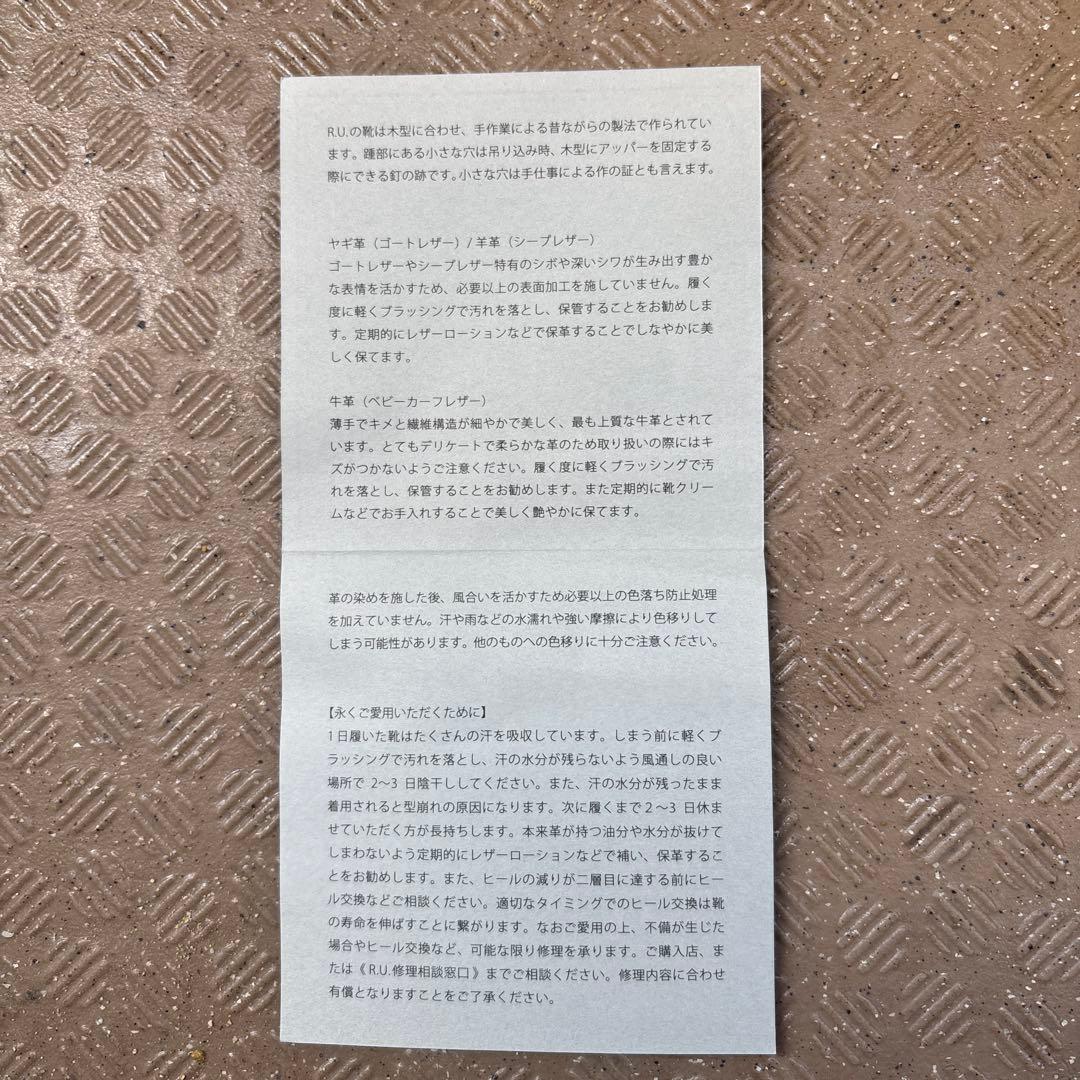 R.U.の靴は木型に合わせ、手作業による昔ながらの製法で作られてい
ます。踵部にある小さな穴は吊り込み時、木型にアッパーを固定する
際にできる釘の跡です。小さな穴は手仕事による作の証とも言えます。
ヤギ革（ゴートレザー）/ 羊革（シープレザー）
ゴートレザーやシープレザー特有のシボや深いシワが生み出す豊か
な表情を活かすため、必要以上の表面加工を施していません。履く
度に軽くブラッシングで汚れを落とし、保管することをお勧めしま
す。定期的にレザーローションなどで保革することでしなやかに美
しく保てます。
牛革（ベビーカーフレザー）
薄手でキメと繊維構造が細やかで美しく、最も上質な牛革とされて
います。とてもデリケートで柔らかな革のため取り扱いの際にはキ
ズがつかないようご注意ください。履く度に軽くブラッシングで汚
れを落とし、保管することをお勧めします。また定期的に靴クリー
ムなどでお手入れすることで美しく艶やかに保てます。
革の染めを施した後、風合いを活かすため必要以上の色落ち防止処理
を加えていません。汗や雨などの水濡れや強い摩擦により色移りして
しまう可能性があります。他のものへの色移りに十分ご注意ください。
【永くご愛用いただくために】
1日履いた靴はたくさんの汗を吸収しています。しまう前に軽くブ
ラッシングで汚れを落とし、汗の水分が残らないよう風通しの良い
場所で 2〜3 日陰干ししてください。また、汗の水分が残ったまま
着用されると型崩れの原因になります。次に履くまで2〜3 日休ま
せていただく方が長持ちします。本来革が持つ油分や水分が抜けて
しまわないよう定期的にレザーローションなどで補い、保革するこ
とをお勧めします。また、ヒールの減りが二層目に達する前にヒー
ル交換などご相談ください。適切なタイミングでのヒール交換は靴
の寿命を伸ばすことに繋がります。なおご愛用の上、不備が生じた
場合やヒール交換など、可能な限り修理を承ります。ご購入店、ま
たは《 R.U.修理相談窓口 》までご相談ください。修理内容に合わせ
有償となりますことをご了承ください。